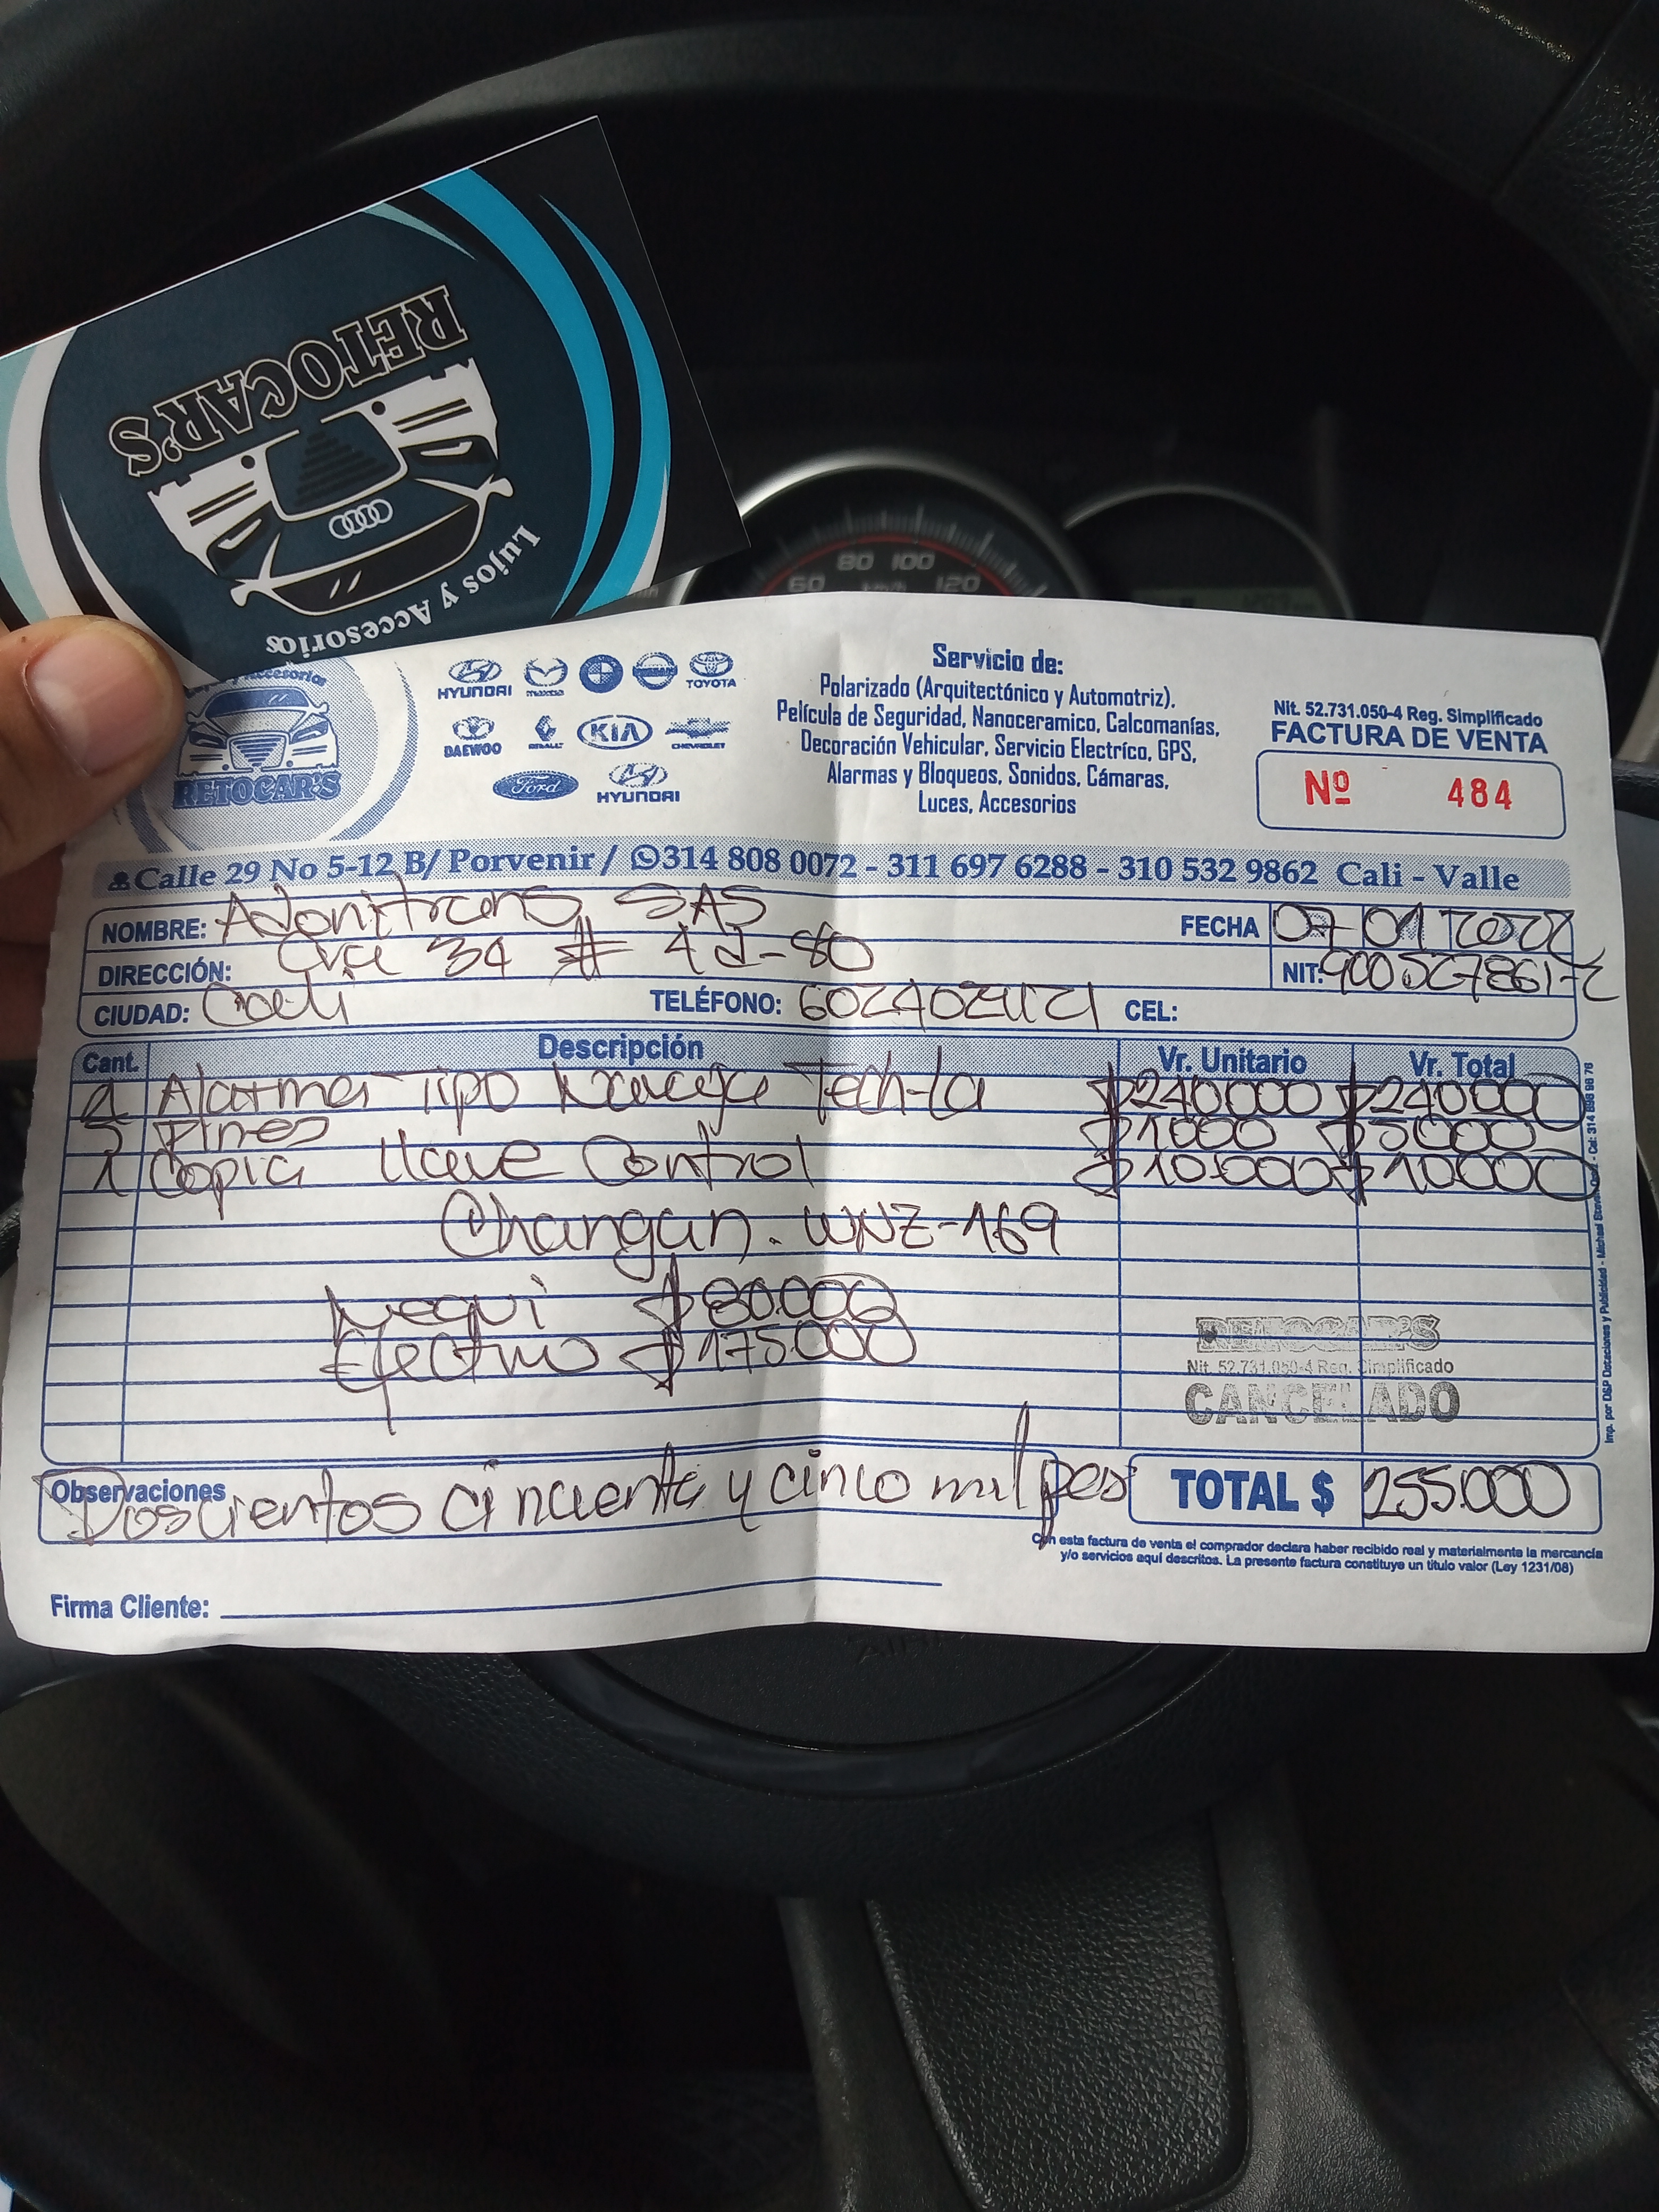 RETOCAR'S
Lujos y Accesorios
RETOCAR'S
HYUNDAI mazda NISSAN TOYOTA
DAEWOO RENAULT KIA CHEVROLET
Ford HYUNDAI
Servicio de:
Polarizado (Arquitectónico y Automotriz).
Película de Seguridad, Nanoceramico, Calcomanías,
Decoración Vehicular, Servicio Electríco, GPS,
Alarmas y Bloqueos, Sonidos, Cámaras,
Luces, Accesorios
Nit. 52.731.050-4 Reg. Simplificado
FACTURA DE VENTA
Nº 484
Calle 29 No 5-12 B/ Porvenir / 314 808 0072 - 311 697 6288 - 310 532 9862 Cali - Valle
NOMBRE: Adonitrans SAS FECHA 07 01 2022
DIRECCIÓN: Cra 34 # 4d-80 NIT:
CIUDAD: Cali TELÉFONO: CEL:
Cant. Descripción Vr. Unitario Vr. Total
1 Alarma Tipo Tech-La $240000 $240000
5 Pines $1000 $5000
1 Copia llave Control $10.000 $10000
Changan. WNZ-169
Nequi $80.000
Efectivo $175000
RETOCAR'S
Nit. 52.731.050-4 Reg. Simplificado
CANCELADO
Observaciones Doscientos cincuenta y cinco mil pesos
TOTAL $ 255.000
Con esta factura de venta el comprador declara haber recibido real y materialmente la mercancía
y/o servicios aquí descritos. La presente factura constituye un título valor (Ley 1231/08)
Firma Cliente:
60 80 100 120
km/h